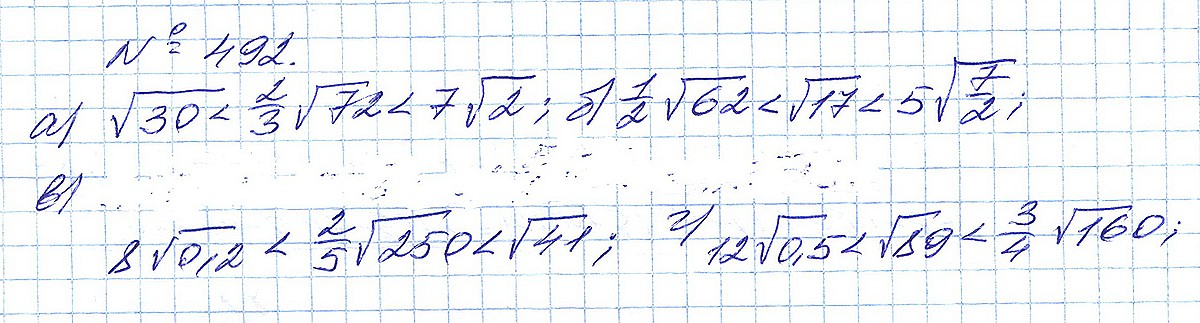 № 492.
а) √30 < 2/3 √72 < 7√2; б) 1/2 √62 < √17 < 5√(7/2);
в)
8√0,2 < 2/5 √250 < √41; г) 12√0,5 < √89 < 3/4 √160;